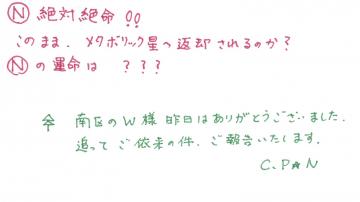 Ⓝ 絶対絶命 !!
このまま、メタボリック星へ返却されるのか?
Ⓝの運命は ???
南区のW様 昨日はありがとうございました。
追って ご依来の件、ご報告いたします。
C.P☆N